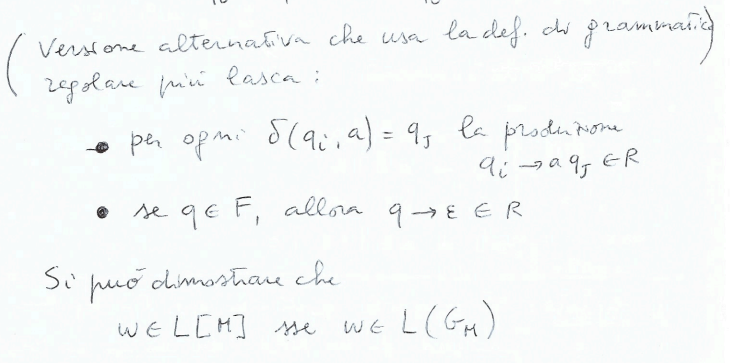 (Versione alternativa che usa la def. di grammatica)
regolare più lasca:
• per ogni δ(qi, a) = qj la produzione
qi → a qj ∈ R
• se q ∈ F, allora q → ε ∈ R
Si può dimostrare che
w ∈ L[M] sse w ∈ L(GM)